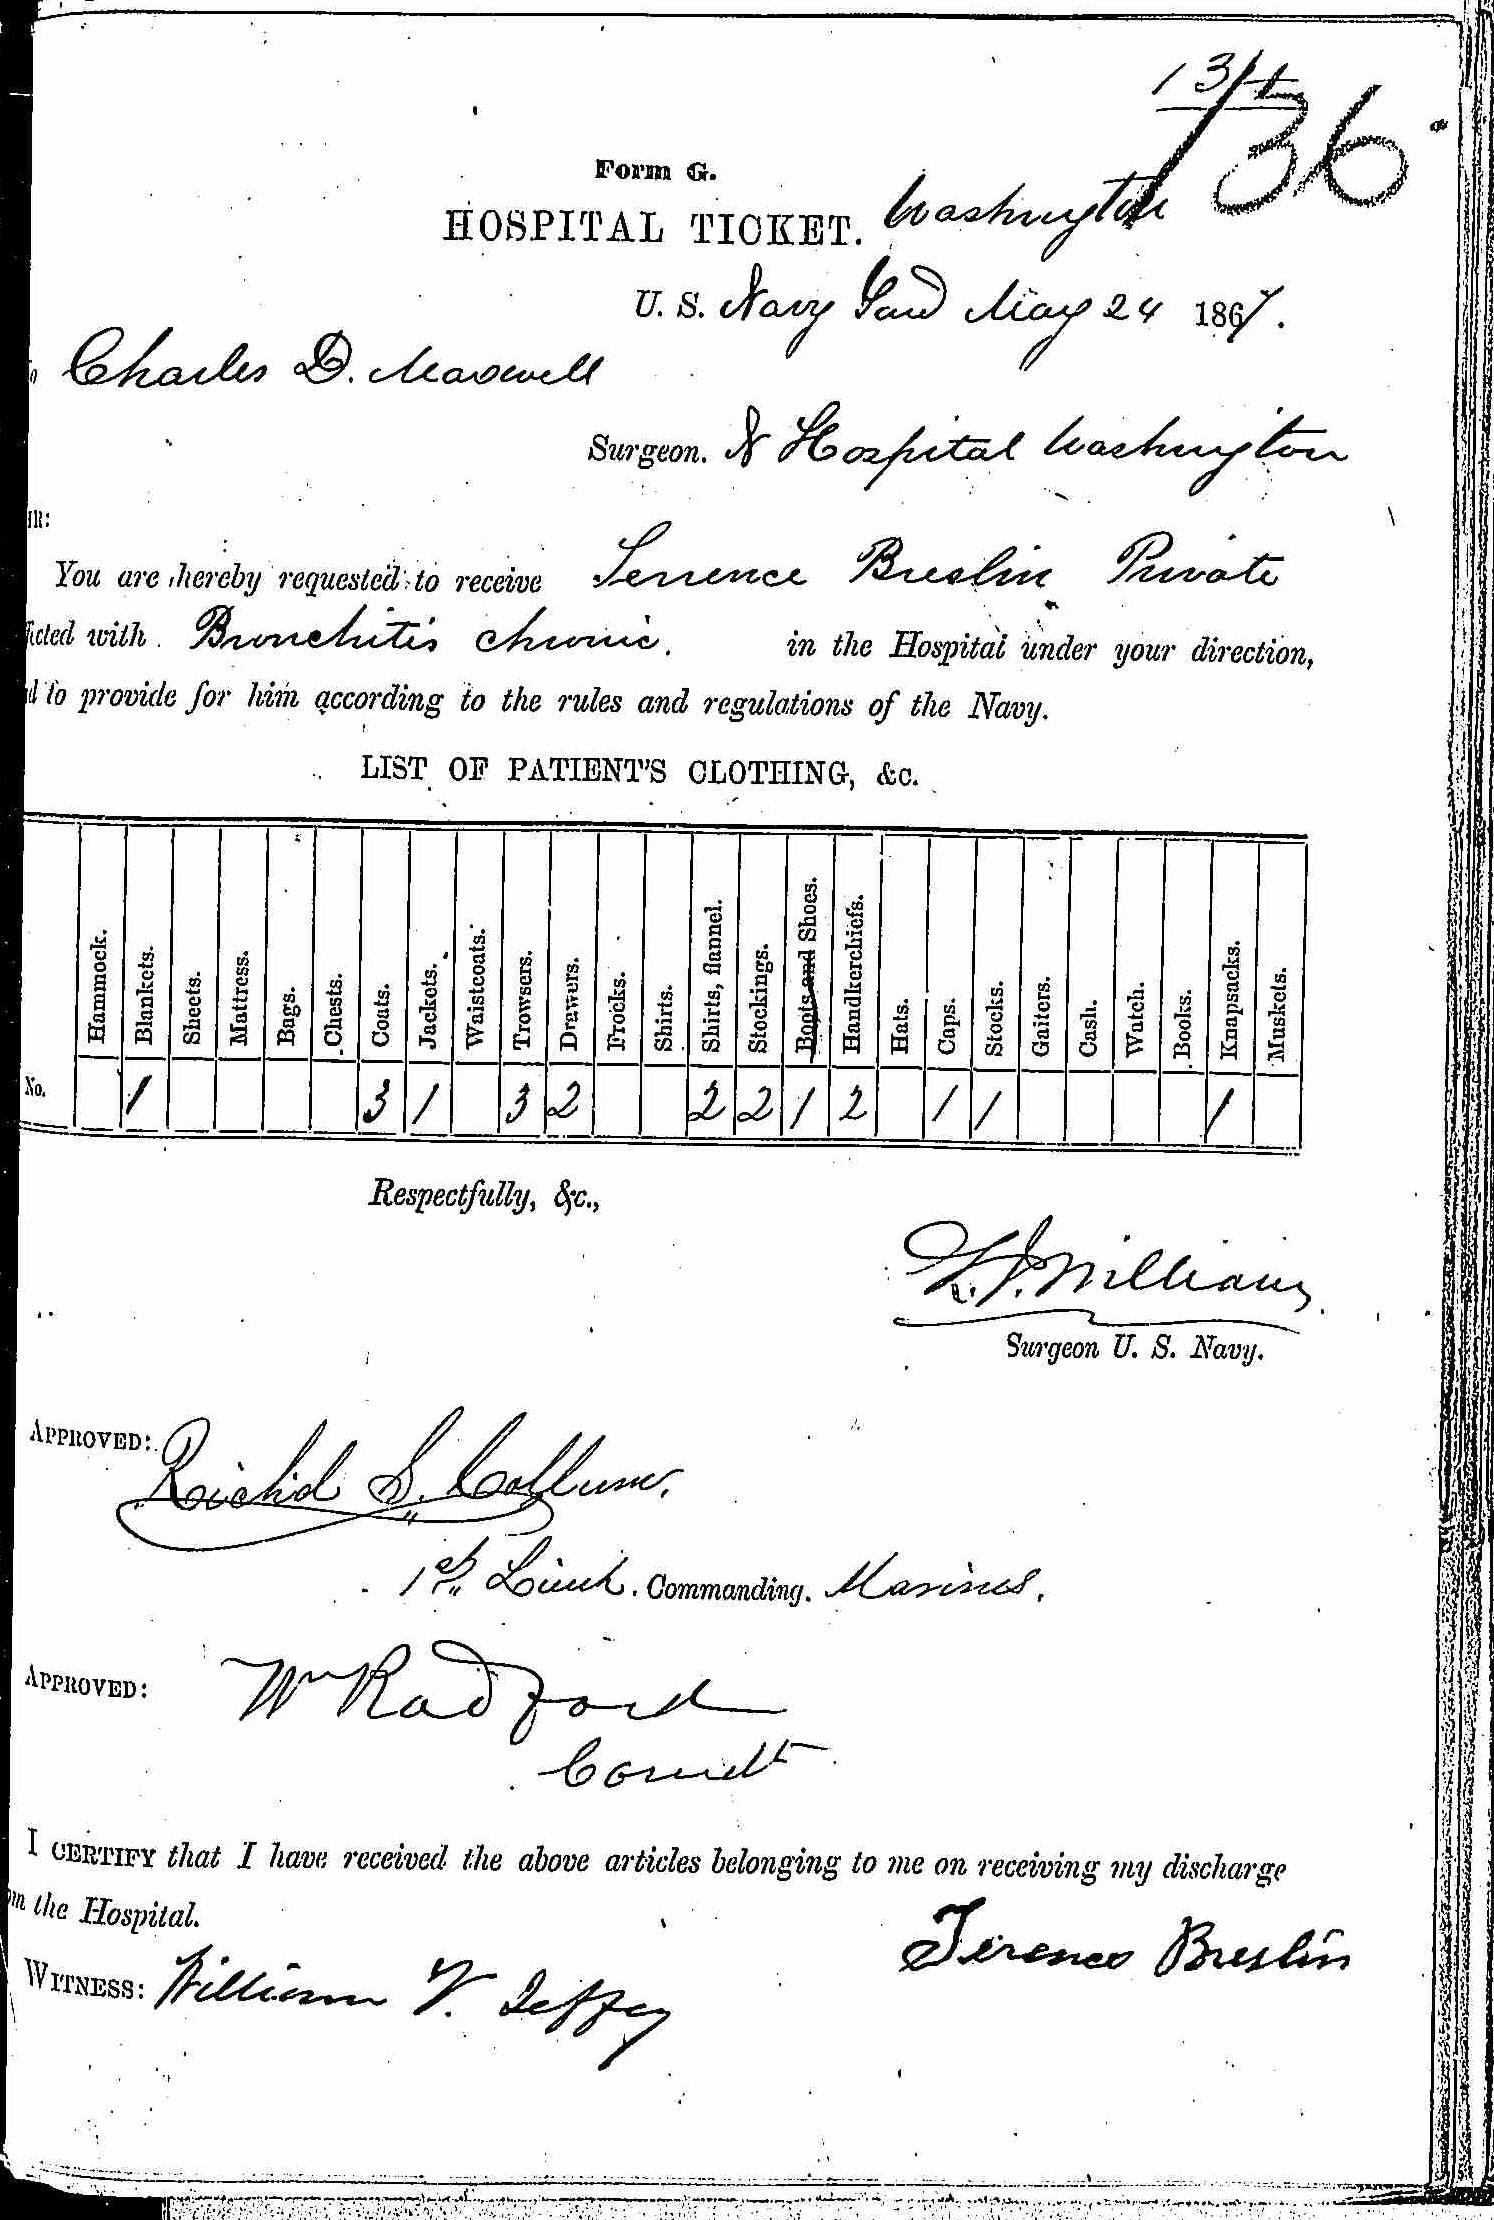 36
Form G.
HOSPITAL TICKET. Washington
U. S. Navy Yard May 24 1867.
Charles D. Maxwell
Surgeon. N Hospital Washington
You are hereby requested to receive Terrence Breslin Private
with Bronchitis chronic. in the Hospital under your direction,
to provide for him according to the rules and regulations of the Navy.
LIST OF PATIENT'S CLOTHING, &c.
Hammock. Blankets. Sheets. Mattress. Bags. Chests. Coats. Jackets. Waistcoats. Trowsers. Drawers. Frocks. Shirts. Shirts, flannel. Stockings. Boots and Shoes. Handkerchiefs. Hats. Caps. Stocks. Gaiters. Cash. Watch. Books. Knapsacks. Muskets.
No. 1 3 1 3 2 2 2 1 2 1 1 1
Respectfully, &c.,
Williams
Surgeon U. S. Navy.
APPROVED: Richd S. Collum.
1st Lieut. Commanding. Marines.
APPROVED: Wm Radford
Comdt
I CERTIFY that I have received the above articles belonging to me on receiving my discharge
the Hospital.
Terence Breslin
WITNESS: William V. Jeffey